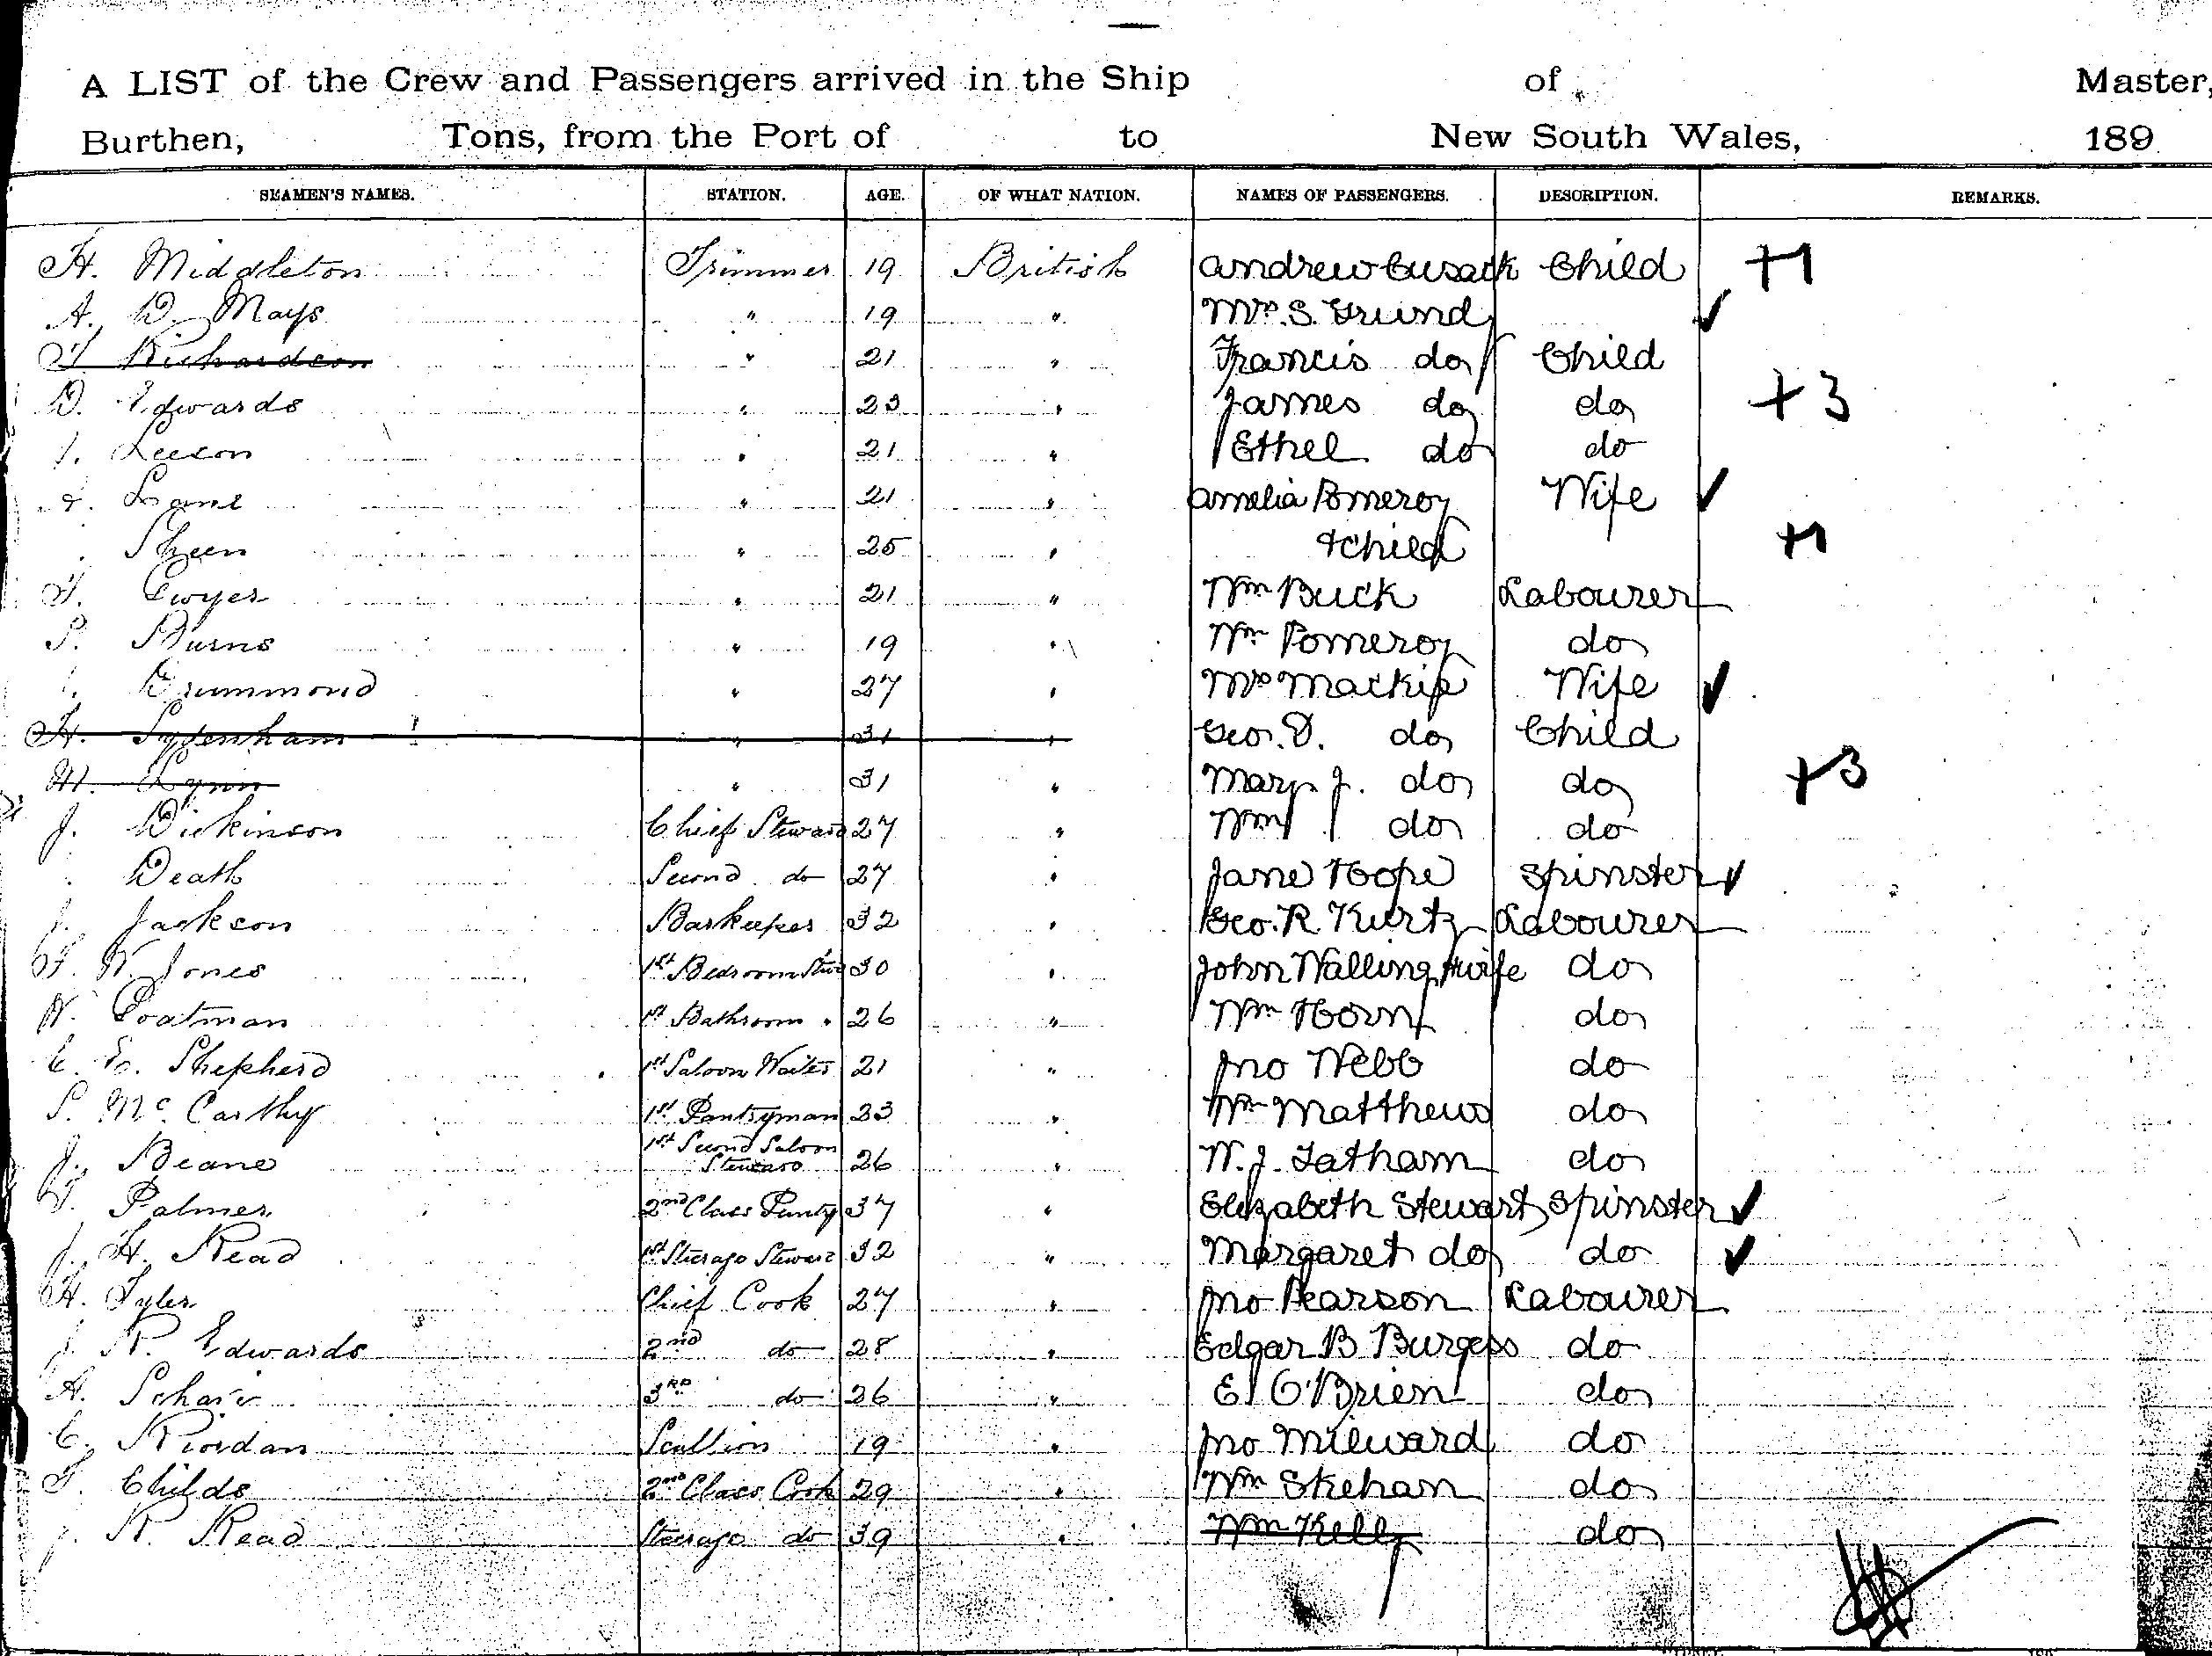 A LIST of the Crew and Passengers arrived in the Ship of Master,
Burthen, Tons, from the Port of to New South Wales, 189
SEAMEN'S NAMES. STATION. AGE. OF WHAT NATION. NAMES OF PASSENGERS. DESCRIPTION. REMARKS.
H. Middleton Trimmer 19 British Andrew Cusack Child +1
A. D. Mays " 19 " Mrs. S. Grund ✓
T Richardson " 21 " Francis do Child
D. Edwards " 23 " James do do +3
J. Leeson " 21 " Ethel do do
Lane " 21 " Amelia Pomeroy Wife ✓
Sheen " 25 " + child +1
T. Dwyer " 21 " Wm Buck Labourer
P. Burns " 19 " Wm Pomeroy do
Drummond " 27 " Mrs Mackie Wife ✓
H. Sydenham " 31 " Geo. D. do Child
M. Lynn " 31 " Mary J. do do +3
J. Dickinson Chief Steward 27 " Wm do do
Death Second do 27 " Jane Hope Spinster ✓
J. Jackson Barkeeper 32 " Geo. R Kurtz Labourer
F. W. Jones 1st Bedroom Stwd 30 " John Walling & wife do
W. Poatman 1st Bathroom " 26 " Wm Horn do
C. E. Shepherd 1st Saloon Waiter 21 " Jno Webb do
P. Mc Carthy 1st Pantryman 23 " Wm Matthews do
J. Beane 1st Second Saloon Steward 26 " W. J. Latham do
T. Palmer 2nd Class Pantry 37 " Elizabeth Stewart Spinster ✓
J. H. Read 1st Steerage Steward 32 " Margaret do do ✓
H. Tyler Chief Cook 27 " Jno Pearson Labourer
J. R. Edwards 2nd do 28 " Edgar B Burgess do
A. 3rd do 26 " E. O'Brien do
C. Riordan Scullion 19 " Jno Milward do
T. Childs 2nd Class Cook 29 " Wm Skehan do
J. R. Read Steerage do 39 " Wm Kelly do